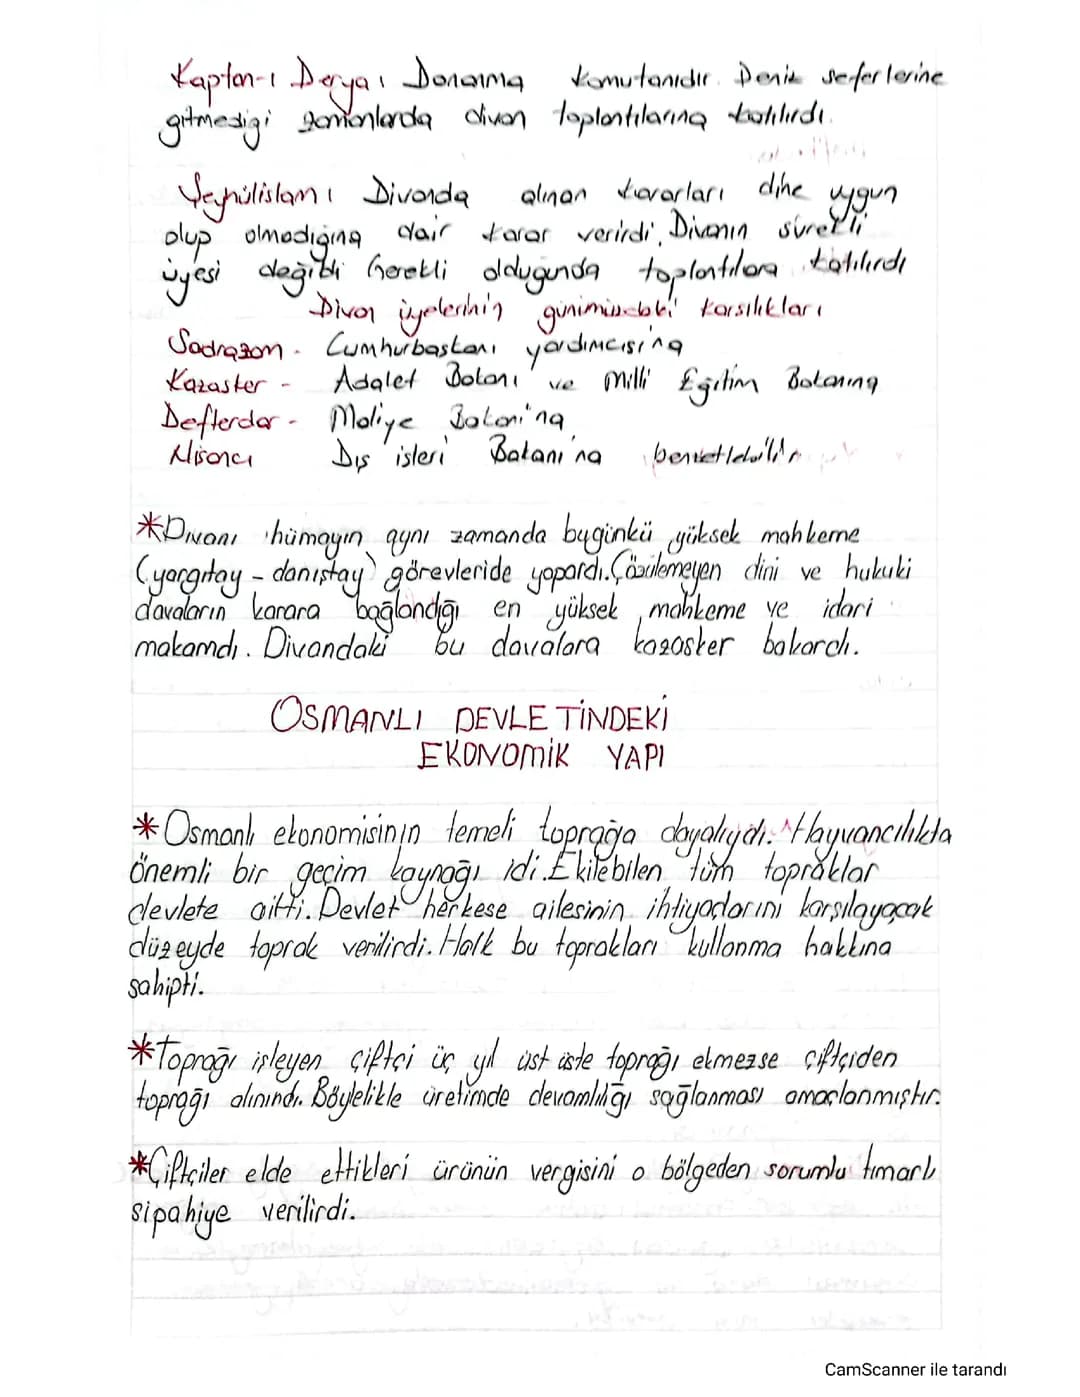 Kaptan-ı Derya: Donanma komutanıdır. Deniz seferlerine
gitmediği zamanlarda divan toplantılarına katılırdı.
Şeyhülislam: Divanda alınan kararları dine uygun
olup olmadığına dair karar verirdi, Divanın sürekli
üyesi değildi Gerekli olduğunda toplantılara katılırdı
Divan üyelerinin günümüzdeki karşılıkları
Sadrazam - Cumhurbaşkanı yardımcısına
Kazasker - Adalet Bakanı ve Milli Eğitim Bakanına
Defterdar - Maliye Bakanı'na
Nişancı Dış işleri Bakanı'na benzetilebilir
*Divanı hümayın aynı zamanda bugünkü yüksek mahkeme
(yargıtay - danıştay) görevleride yapardı. Çözülemeyen dini ve hukuki
davaların karara bağlandığı en yüksek mahkeme ve idari
makamdı. Divandaki bu davalara kazasker bakardı.
OSMANLI DEVLETİNDEKİ
EKONOMİK YAPI
*Osmanlı ekonomisinin temeli toprağa dayalıydı. Hayvancılıkta
önemli bir geçim kaynağı idi. Ekilebilen tüm topraklar
devlete aitti. Devlet herkese ailesinin ihtiyaçlarını karşılayacak
düzeyde toprak verilirdi. Halk bu toprakları kullanma hakkına
sahipti.
*Toprağı işleyen çiftçi üç yıl üst üste toprağı ekmezse çiftçiden
toprağı alınırdı. Böylelikle üretimde devamlılığı sağlanması amaçlanmıştır.
*Çiftçiler elde ettikleri ürünün vergisini o bölgeden sorumlu tımarlı
sipahiye verilirdi.
CamScanner ile tarandı